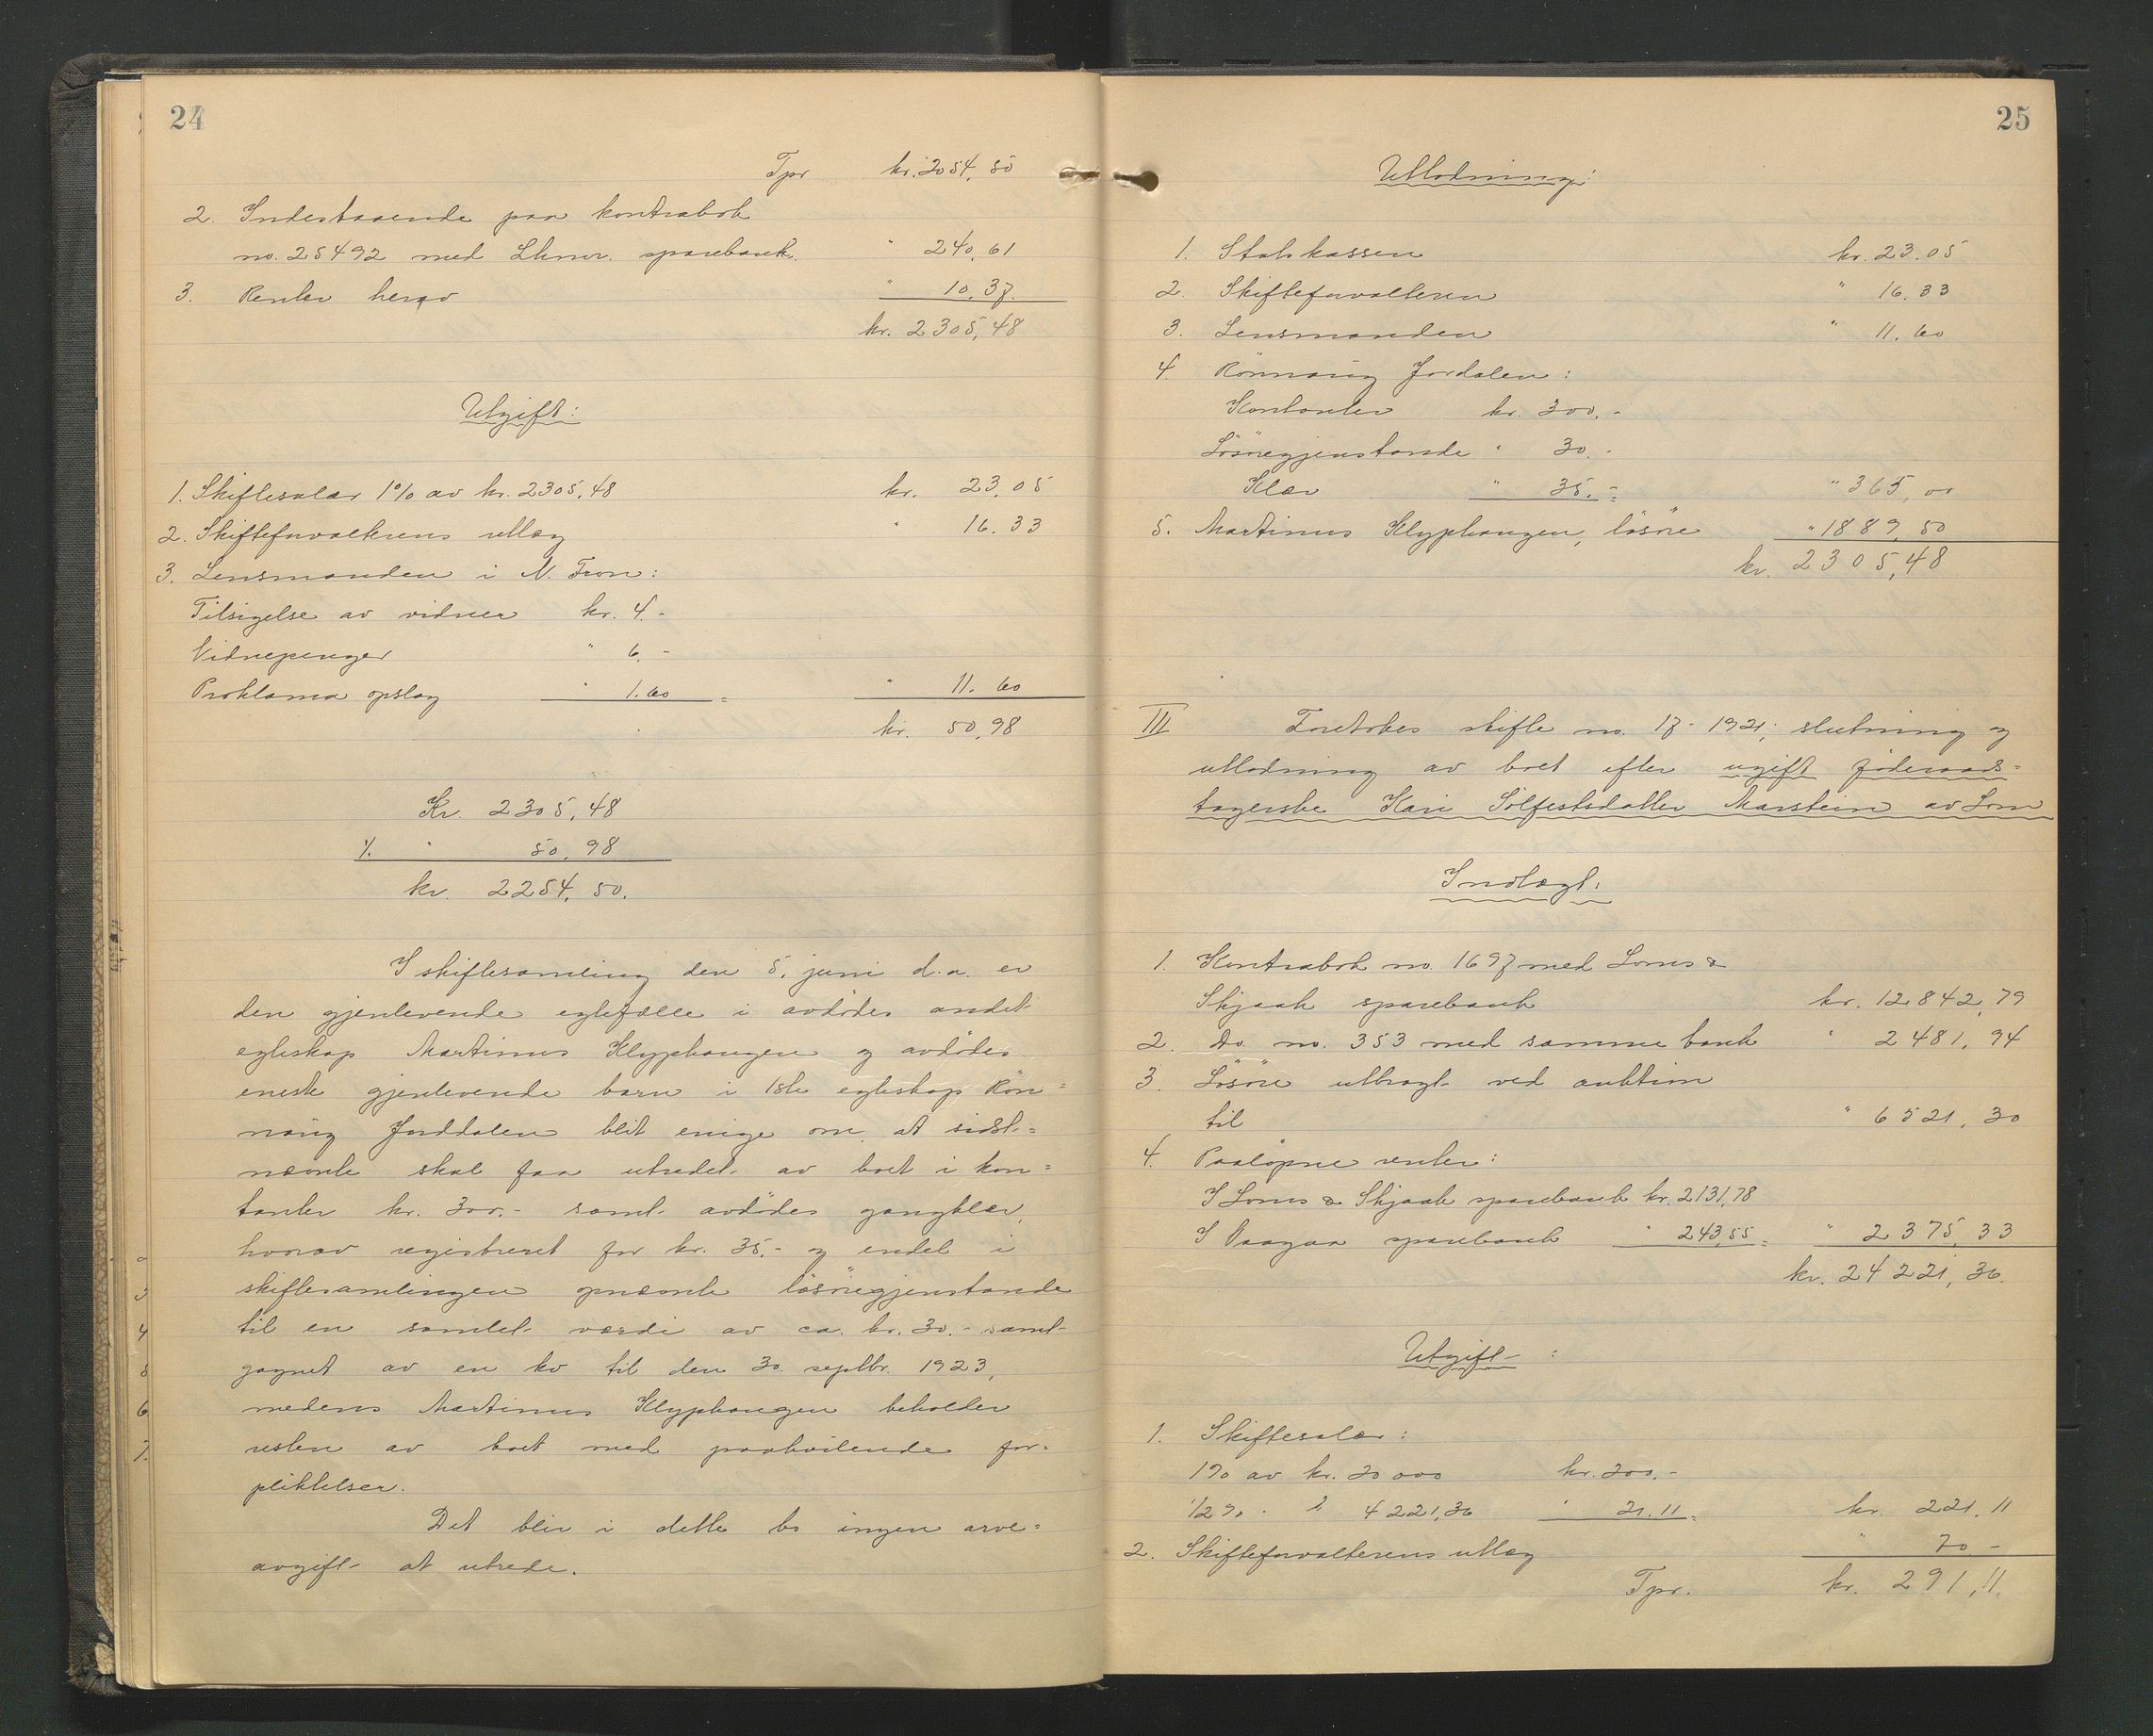 24
Tpr kr. 2054,50
2. Indestaaende paa kontrabok
no. 25492 med Lhmr. sparebank. " 240,61
3. Renter herav " 10,37.
kr. 2305,48
Utgift:
1. Skiftesalær 1% av kr. 2305,48 kr. 23,05
2. Skifteforvalterens utlæg " 16.33
3. Lensmanden i N. Fron:
Tilsigelse av vidner kr. 4.-
Vidnepenger " 6.-
Proklama opslag " 1.60 = " 11.60
kr. 50,98
Kr. 2305,48
⁒ " 50,98
kr. 2254,50.
I skiftesamling den 5. juni d.a. er
den gjenlevende egtefælle i avdödes andet
egteskap Martinus Klyphaugen og avdödes
eneste gjenlevende barn i 1ste egteskap Rön=
naug Jorddalen blit enige om at sidst=
nævnte skal faa utredet av boet i kon=
tanter kr. 300.- samt avdödes gangklær,
hvorav registreret for kr. 35.- og endel i
skiftesamlingen opnævnte lösöregjenstande
til en samlet værdi av ca. kr. 30.- samt
gagnet av en ko til den 30 septbr. 1923,
medens Martinus Klyphaugen beholder
resten av boet med paahvilende for=
pliktelser.
Det blir i dette bo ingen arve=
avgift at utrede.
25
Utlodning:
1. Statskassen kr. 23.05
2. Skifteforvalteren " 16.33
3. Lensmanden " 11.60
4. Rönnaug Jordalen:
Kontanter kr. 300.-
Lösöregjenstande " 30.-
Klær " 35.- = " 365,00
5. Martinus Klyphaugen, lösöre " 1889,50
kr. 2305,48
III Foretokes skifte no. 17-1921; slutning og
utlodning av boet efter ugift föderaads=
tagerske Kari Sölfestsdatter Marstein av Lom
Indtægt:
1. Kontrabok no. 1697 med Loms &
Skjaak sparebank kr. 12842,79
2. Do. no. 353 med samme bank " 2481,94
3. Lösöre utbragt ved auktion
til " 6521,30
4. Paalöpne renter:
I Loms & Skjaak sparebank kr. 2131,78
I Vaagaa sparebank " 243,55 = " 2375,33
kr. 24221,36.
Utgift:
1. Skiftesalær:
1% av kr. 20000 kr. 200.-
1/2% " " 4221,36 " 21.11 = kr. 221,11
2. Skifteforvalterens utlæg " 70.-
Tpr. kr. 291,11.